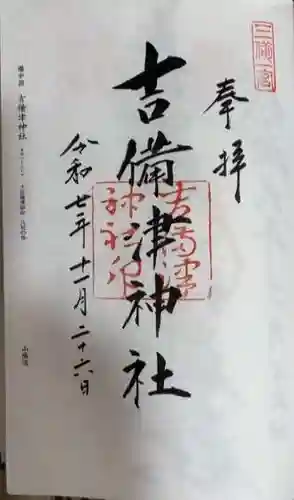 三備一宮
奉拝
吉備津神社
吉備津
神社印
令和七年十一月二十六日
備中国 吉備津神社
山陽道